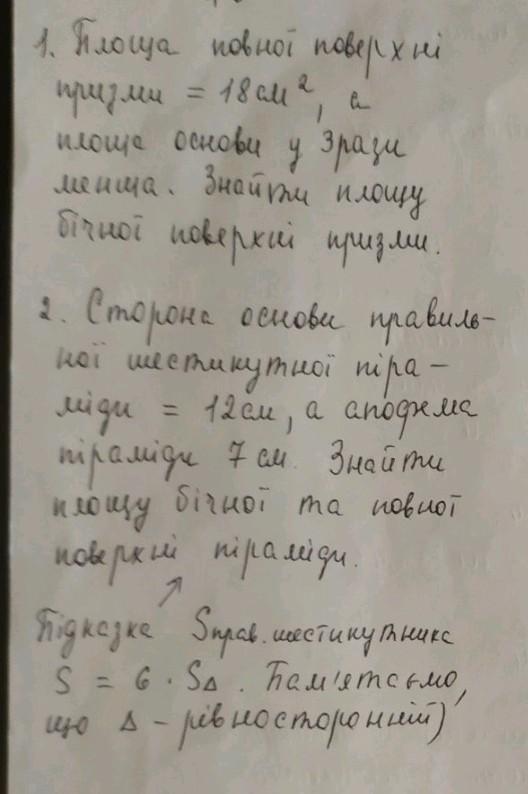 1. Площа повної поверхні
призми = 18 см², а
площа основи у 3рази
менша. Знайти площу
бічної поверхні призми.
2. Сторона основи правиль-
ної шестикутної піра-
міди = 12см, а апофема
піраміди 7 см. Знайти
площу бічної та повної
поверхні піраміди.
↗
Підказка Sправ. шестикутника
S = 6 · S∆. Пам'ятаємо,
що ∆ - рівносторонній)